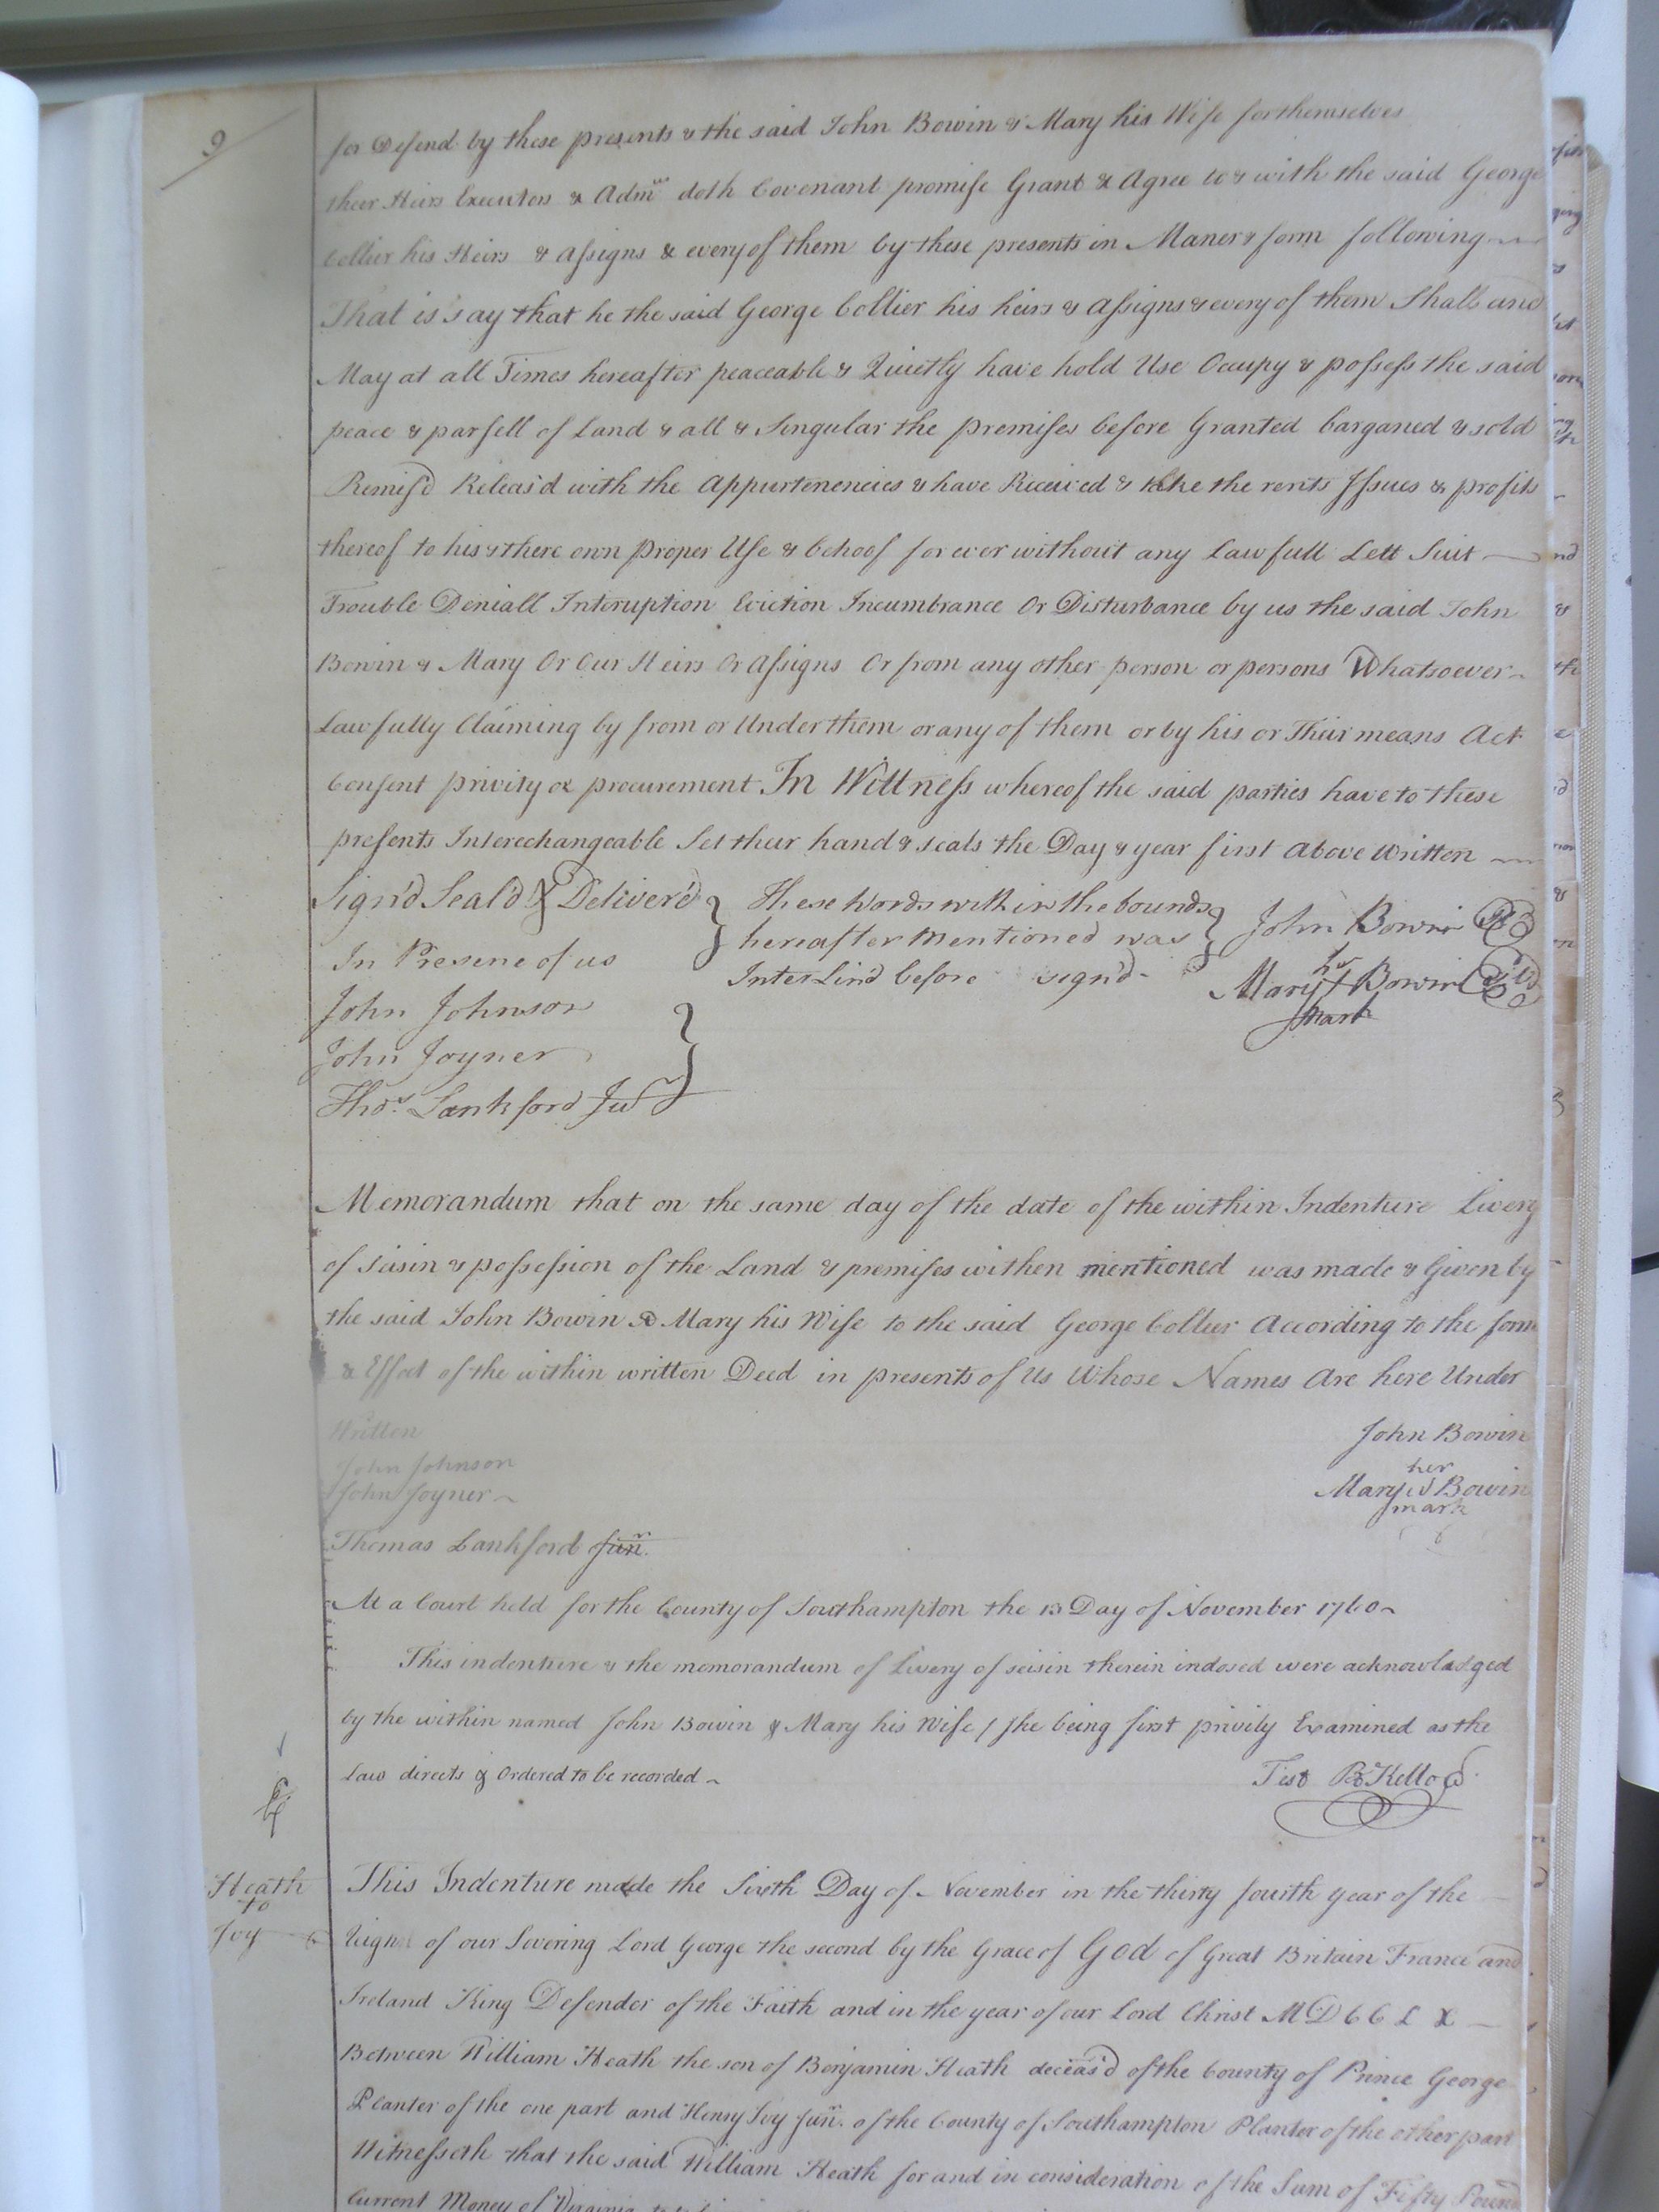 9
for Defend by these presents & the said John Bowin & Mary his Wife for themselves
their Heirs Executors & Admrs doth Covenant promise Grant & Agree to & with the said George
Collier his Heirs & assigns & every of them by these presents in Maner & form following
That is say that he the said George Collier his heirs & assigns & every of them Shall and
May at all Times hereafter peaceable & Quietly have hold Use Occupy & possess the said
peace & parsell of Land & all & Singular the premises before Granted barganed & sold
Remis'd Releas'd with the Appurtenencies & have Received & take the rents Issues & profits
thereof to his & there own proper Use & behoof for ever without any Lawfull Lett Suit
Trouble Deniall Interuption Eviction Incumbrance Or Disturbance by us the said John
Bowin & Mary Or Our Heirs Or assigns Or from any other person or persons Whatsoever
Lawfully Claiming by from or Under them or any of them or by his or Their means Act
Consent privity or procurement In Wittness whereof the said parties have to these
presents Interechangeable Set their hand & seals the Day & year first Above Written
Sign'd Seal'd & Deliver'd These Words with in the bounds John Bowin
In Presene of us hereafter Mentioned was
Inter Lin'd before sign'd her
John Johnson Mary Bowin
mark
John Joyner
Thos. Lankford Jur
Memorandum that on the same day of the date of the within Indenture Livery
of Siasin & possession of the Land & premises withen mentioned was made & Given by
the said John Bowin & Mary his Wife to the said George Collier According to the form
& Effect of the within written Deed in presents of Us Whose Names Are here Under
Written John Bowin
John Johnson her
John Joyner Mary Bowin
mark
Thomas Lankford Junr.
At a Court held for the County of Southampton the 13 Day of November 1760
This indenture & the memorandum of Livery of seisin therein indosed were acknowladged
by the within named John Bowin & Mary his Wife / She being first privily Examined as the
Law directs & Ordered to be recorded
Test Kello
Heath
to
Ivy
This Indenture made the Sixth Day of November in the thirty fourth year of the
Reign of our Sovering Lord George the second by the Grace of God of Great Britain France and
Ireland King Defender of the Faith and in the year of our Lord Christ MDCCLX
Between William Heath the son of Benjamin Heath deceas'd of the County of Prince George
Planter of the one part and Henry Ivy Junr. of the County of Southampton Planter of the other part
Witnesseth that the said William Heath for and in consideration of the Sum of Fifty Pound
Current Money of Virginia